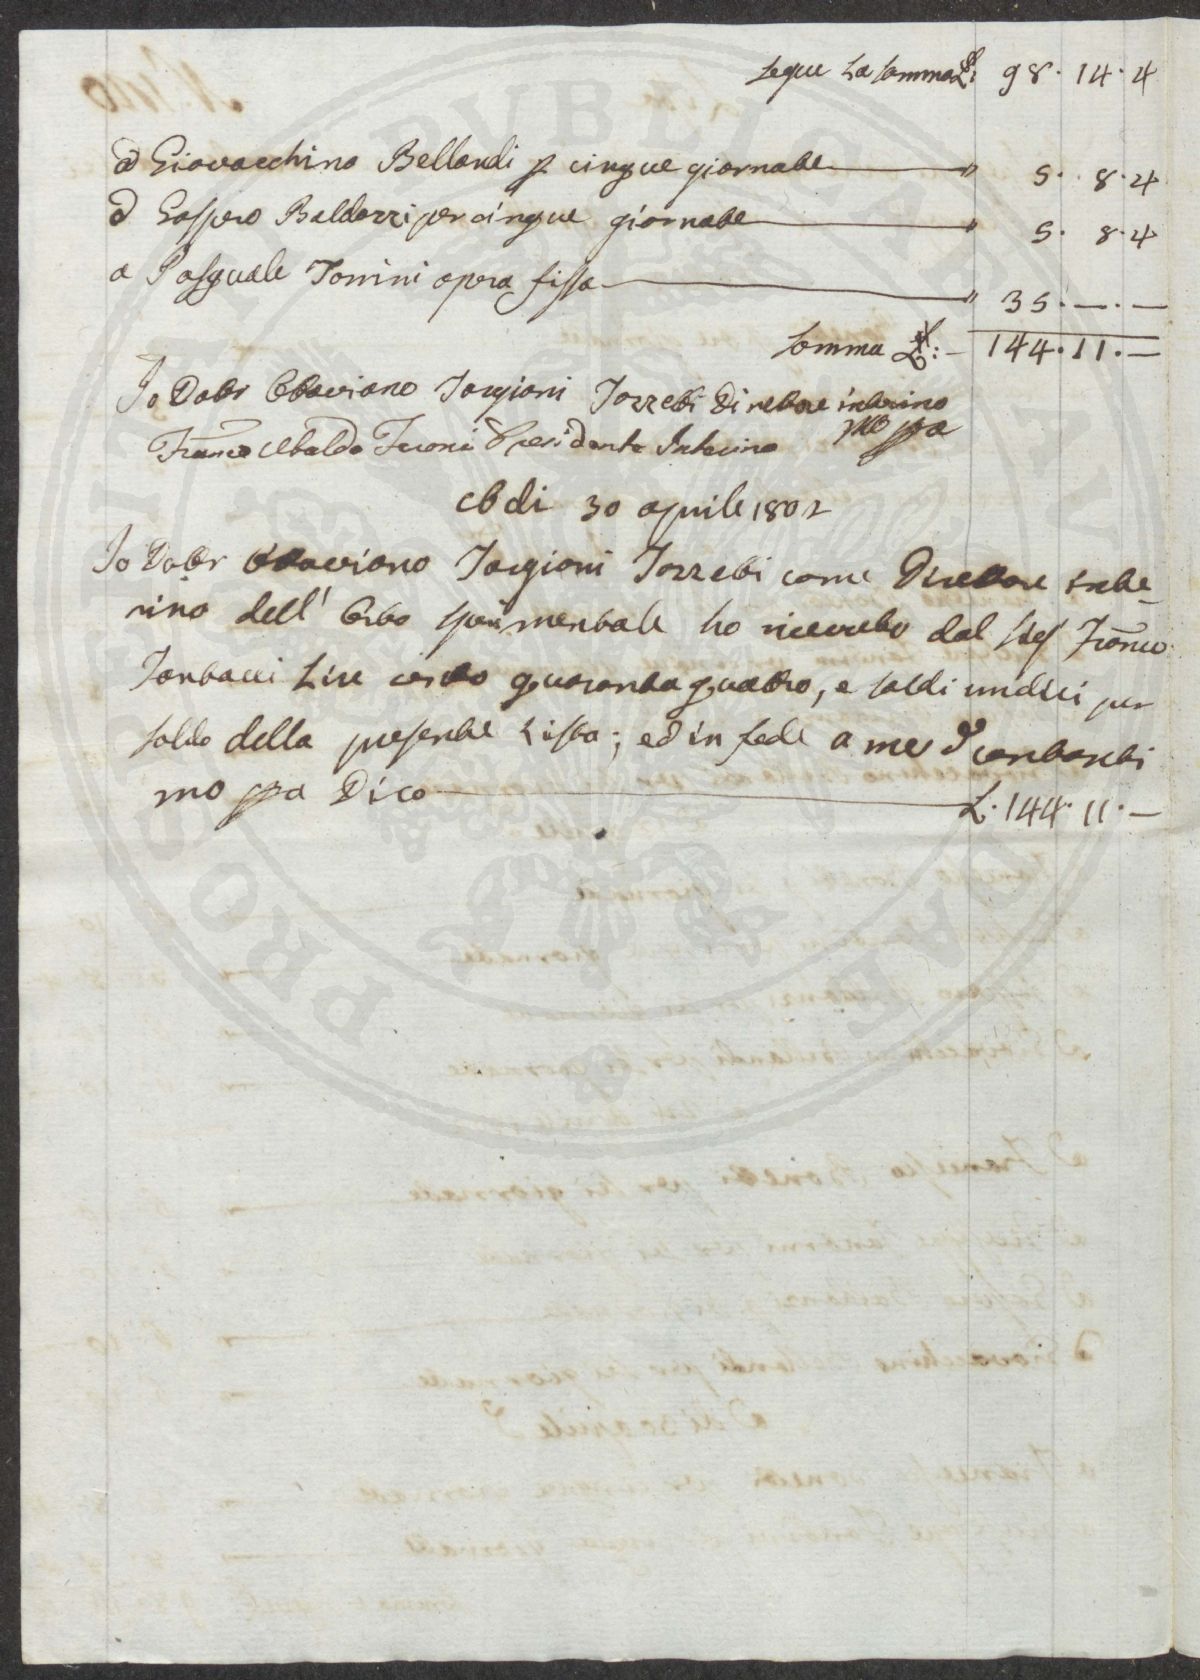 segue La somma £: 98. 14. 4
a Giovacchino Bellandi p cinque giornate " 5. 8. 4
a Gaspero Baldazzi per cinque giornate " 5. 8. 4
a Pasquale Tonini opera fissa " 35. — . —
Somma £: — 144. 11. —
Io Dottr Ottaviano Targioni Tozzetti Direttore interino
mo ppa
Franco Ubaldo Feroni Presidente Interino
A dì 30 aprile 1802
Io Dottr Ottaviano Targioni Tozzetti come Direttore inte-
rino dell' Orto sperimentale ho ricevuto dal Sig Franco
Tartacci Lire cento quarantaquattro, e soldi undici per
saldo della presente Lista; ed in fede a me contanti
mo ppa Dico L. 144. 11. —
PVBLICAE PROSPERITATI